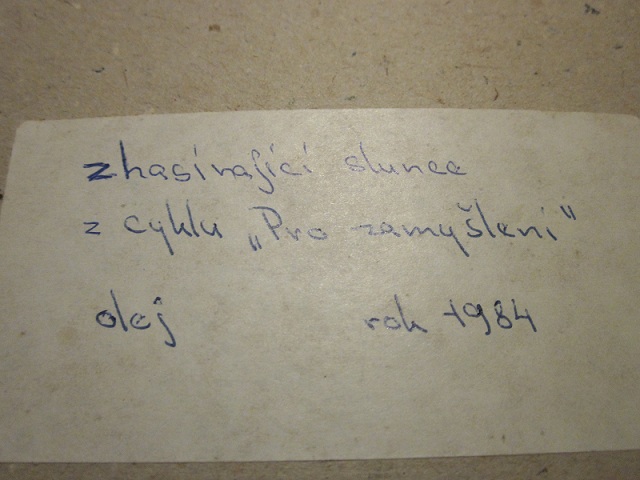 zhasínající slunce
z cyklu „Pro zamyšlení"
olej rok 1984